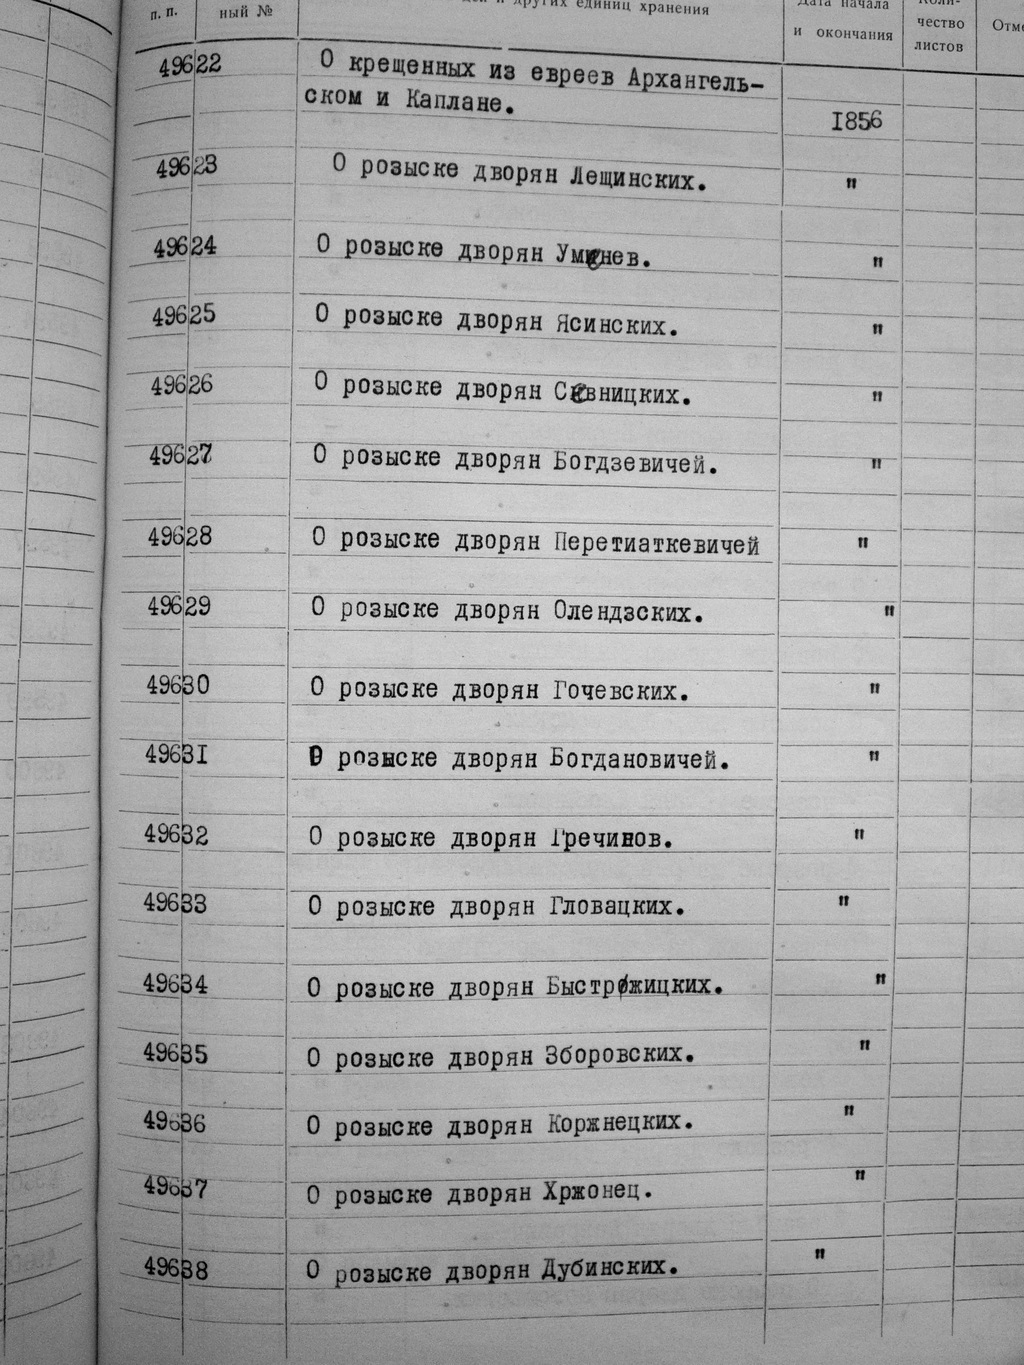 п. п.
ный №
и других единиц хранения
Дата начала
и окончания
чество
листов
49622 О крещенных из евреев Архангель-
ском и Каплане. 1856
49623 О розыске дворян Лещинских. "
49624 О розыске дворян "
49625 О розыске дворян Ясинских. "
49626 О розыске дворян "
49627 О розыске дворян Богдзевичей. "
49628 О розыске дворян Перетиаткевичей "
49629 О розыске дворян Олендзских. "
49630 О розыске дворян Гочевских. "
49631 О розыске дворян Богдановичей. "
49632 О розыске дворян Гречинов. "
49633 О розыске дворян Гловацких. "
49634 О розыске дворян "
49635 О розыске дворян Зборовских. "
49636 О розыске дворян Коржнецких. "
49637 О розыске дворян Хржонец. "
49638 О розыске дворян Дубинских. "